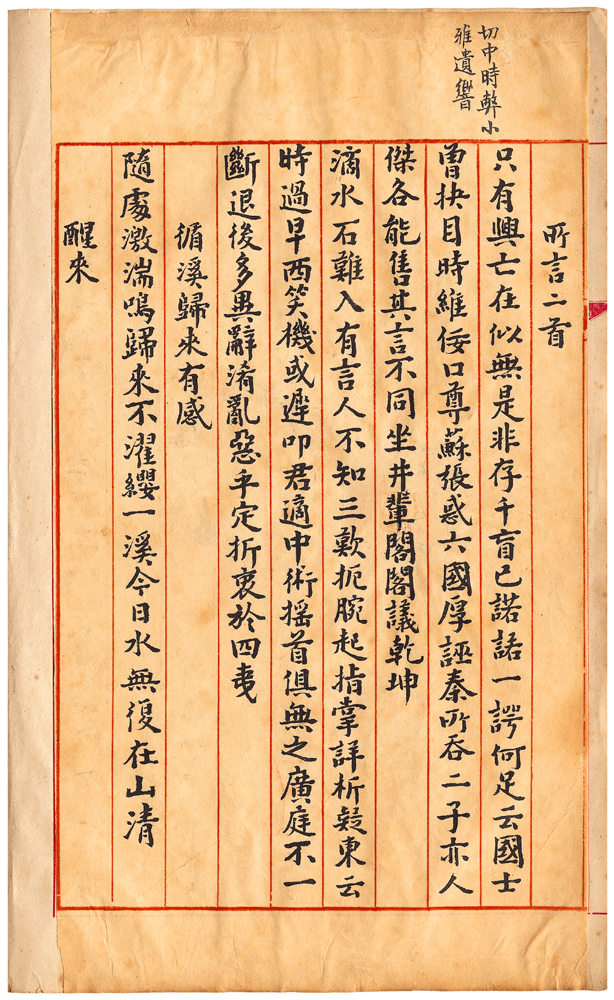 切中時弊小
雅遺響
所言二首
只有興亡在似無是非存千盲已諾諾一諤何足云國士
曾抉目時維佞口尊蘇張惑六國厚誣秦所吞二子亦人
傑各能售其言不同坐井輩閣閣議乾坤
滴水石難入有言人不知三歎扼腕起指掌詳析疑東云
時過早西笑機或遲叩君適中術搖首俱無之廣庭不一
斷退後多異辭淆亂惡乎定折衷於四夷
循溪歸來有感
隨處激湍鳴歸來不濯纓一溪今日水無復在山清
醒來